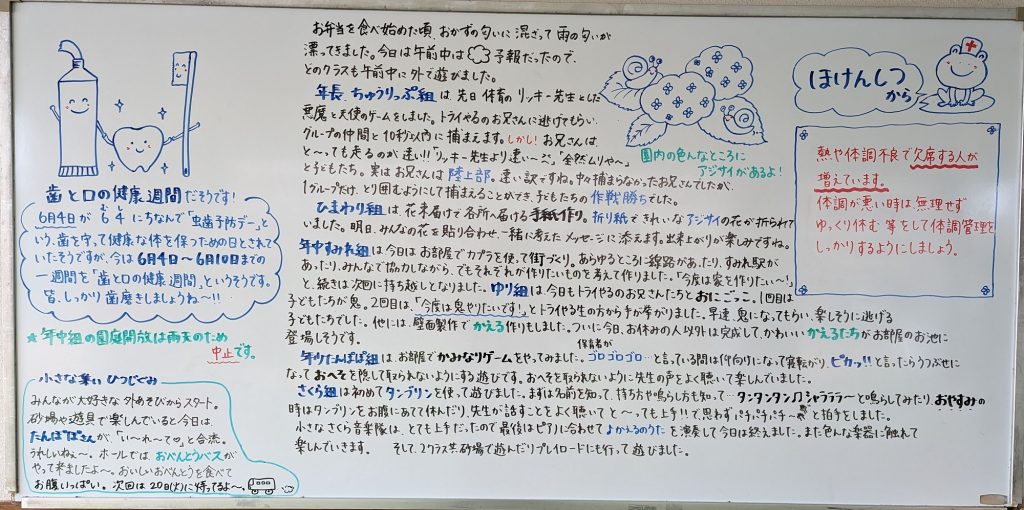 歯と口の健康週間だそうです!
6月4日が 6 4 にちなんで「虫歯予防デー」と
む し
いう、歯を守って健康な体を保つための日とされて
いたそうですが、今は6月4日〜6月10日までの
一週間を「歯と口の健康週間」というそうです。
皆、しっかり歯磨きしましょうね〜!!
★ 年中組の園庭開放は雨天のため
中止です。
小さな集い ひつじぐみ
みんなが大好きな外あそびからスタート。
砂場や遊具で楽しんでいると今日は、
たんぽぽさんが、「い〜れ〜て♡」と合流。
うれしいねぇ〜。ホールでは、おべんとうバスが
やって来ましたよ〜。おいしいおべんとうを食べて
お腹いっぱい。次回は20日(火)に待ってるよ〜。
お弁当を食べ始めた頃、おかずの匂いに混ざって雨の匂いが
漂ってきました。今日は午前中は 予報だったので、
どのクラスも午前中に外で遊びました。
年長、ちゅうりっぷ組は、先日体育のリッキー先生とした
悪魔と天使のゲームをしました。トライやるのお兄さんに逃げてもらい、
グループの仲間と10秒以内に捕まえます。しかし!お兄さんは、
と〜っても走るのが速い!!「リッキー先生より速い〜」「全然ムリや〜」
と子どもたち。実はお兄さんは陸上部。速い訳ですね。中々捕まらなかったお兄さんでしたが、
1グループだけ、とり囲むようにして捕まえることができ、子どもたちの作戦勝ちでした。
ひまわり組は、花束届けで各所へ届ける手紙作り。折り紙できれいなアジサイの花が折られて
いました。明日、みんなの花を貼り合わせ、一緒に考えたメッセージに添えます。出来上がりが楽しみですね。
年中すみれ組は今日はお部屋でカプラを使って街づくり。あらゆるところに線路があったり、すみれ駅が
あったり、みんなで協力しながら、でもそれぞれが作りたいものを考えて作りました。「今度は家を作りたい〜!」
と、続きは次回に持ち越しとなりました。ゆり組は今日もトライやるのお兄さんたちとおにごっこ。1回目は
子どもたちが鬼。2回目は、「今度は鬼やりたいです!」とトライやる生の方から手が挙がりました。早速、鬼になってもらい、楽しそうに逃げる
子どもたちでした。他には、壁面製作でかえる作りもしました。ついに今日、お休みの人以外は完成して、かわいいかえるたちがお部屋のお池に
登場しそうです。
保育者が
年少たんぽぽ組は、お部屋でかみなりゲームをやってみました。ゴロゴロゴロ…と言っている間は仰向けになって寝転がり、ピカッ!!と言ったらうつぶせに
なっておへそを隠して取られないようにする遊びです。おへそを取られないように先生の声をよく聴いて楽しんでいました。
さくら組は初めてタンブリンを使って遊びました。まずは名前を知って、持ち方や鳴らし方も知って…タンタンタン♫シャラララ〜と鳴らしてみたり、おやすみの
時はタンブリンをお腹にあてて休んだり、先生が話すことをよく聴いてと〜っても上手!!で思わずパチパチパチ〜と拍手をしました。
小さなさくら音楽隊は、とても上手だったので最後はピアノに合わせてよかえるのうたを演奏して今日は終えました。また色んな楽器に触れて
楽しんでいきます。 そして、2クラス共砂場で遊んだりプレイロードにも行って遊びました。
園内の色んなところに
アジサイがあるよ!
ほけんしつ
から
熱や体調不良で欠席する人が
増えています。
体調が悪い時は無理せず
ゆっくり休む 等をして体調管理を
しっかりするようにしましょう。